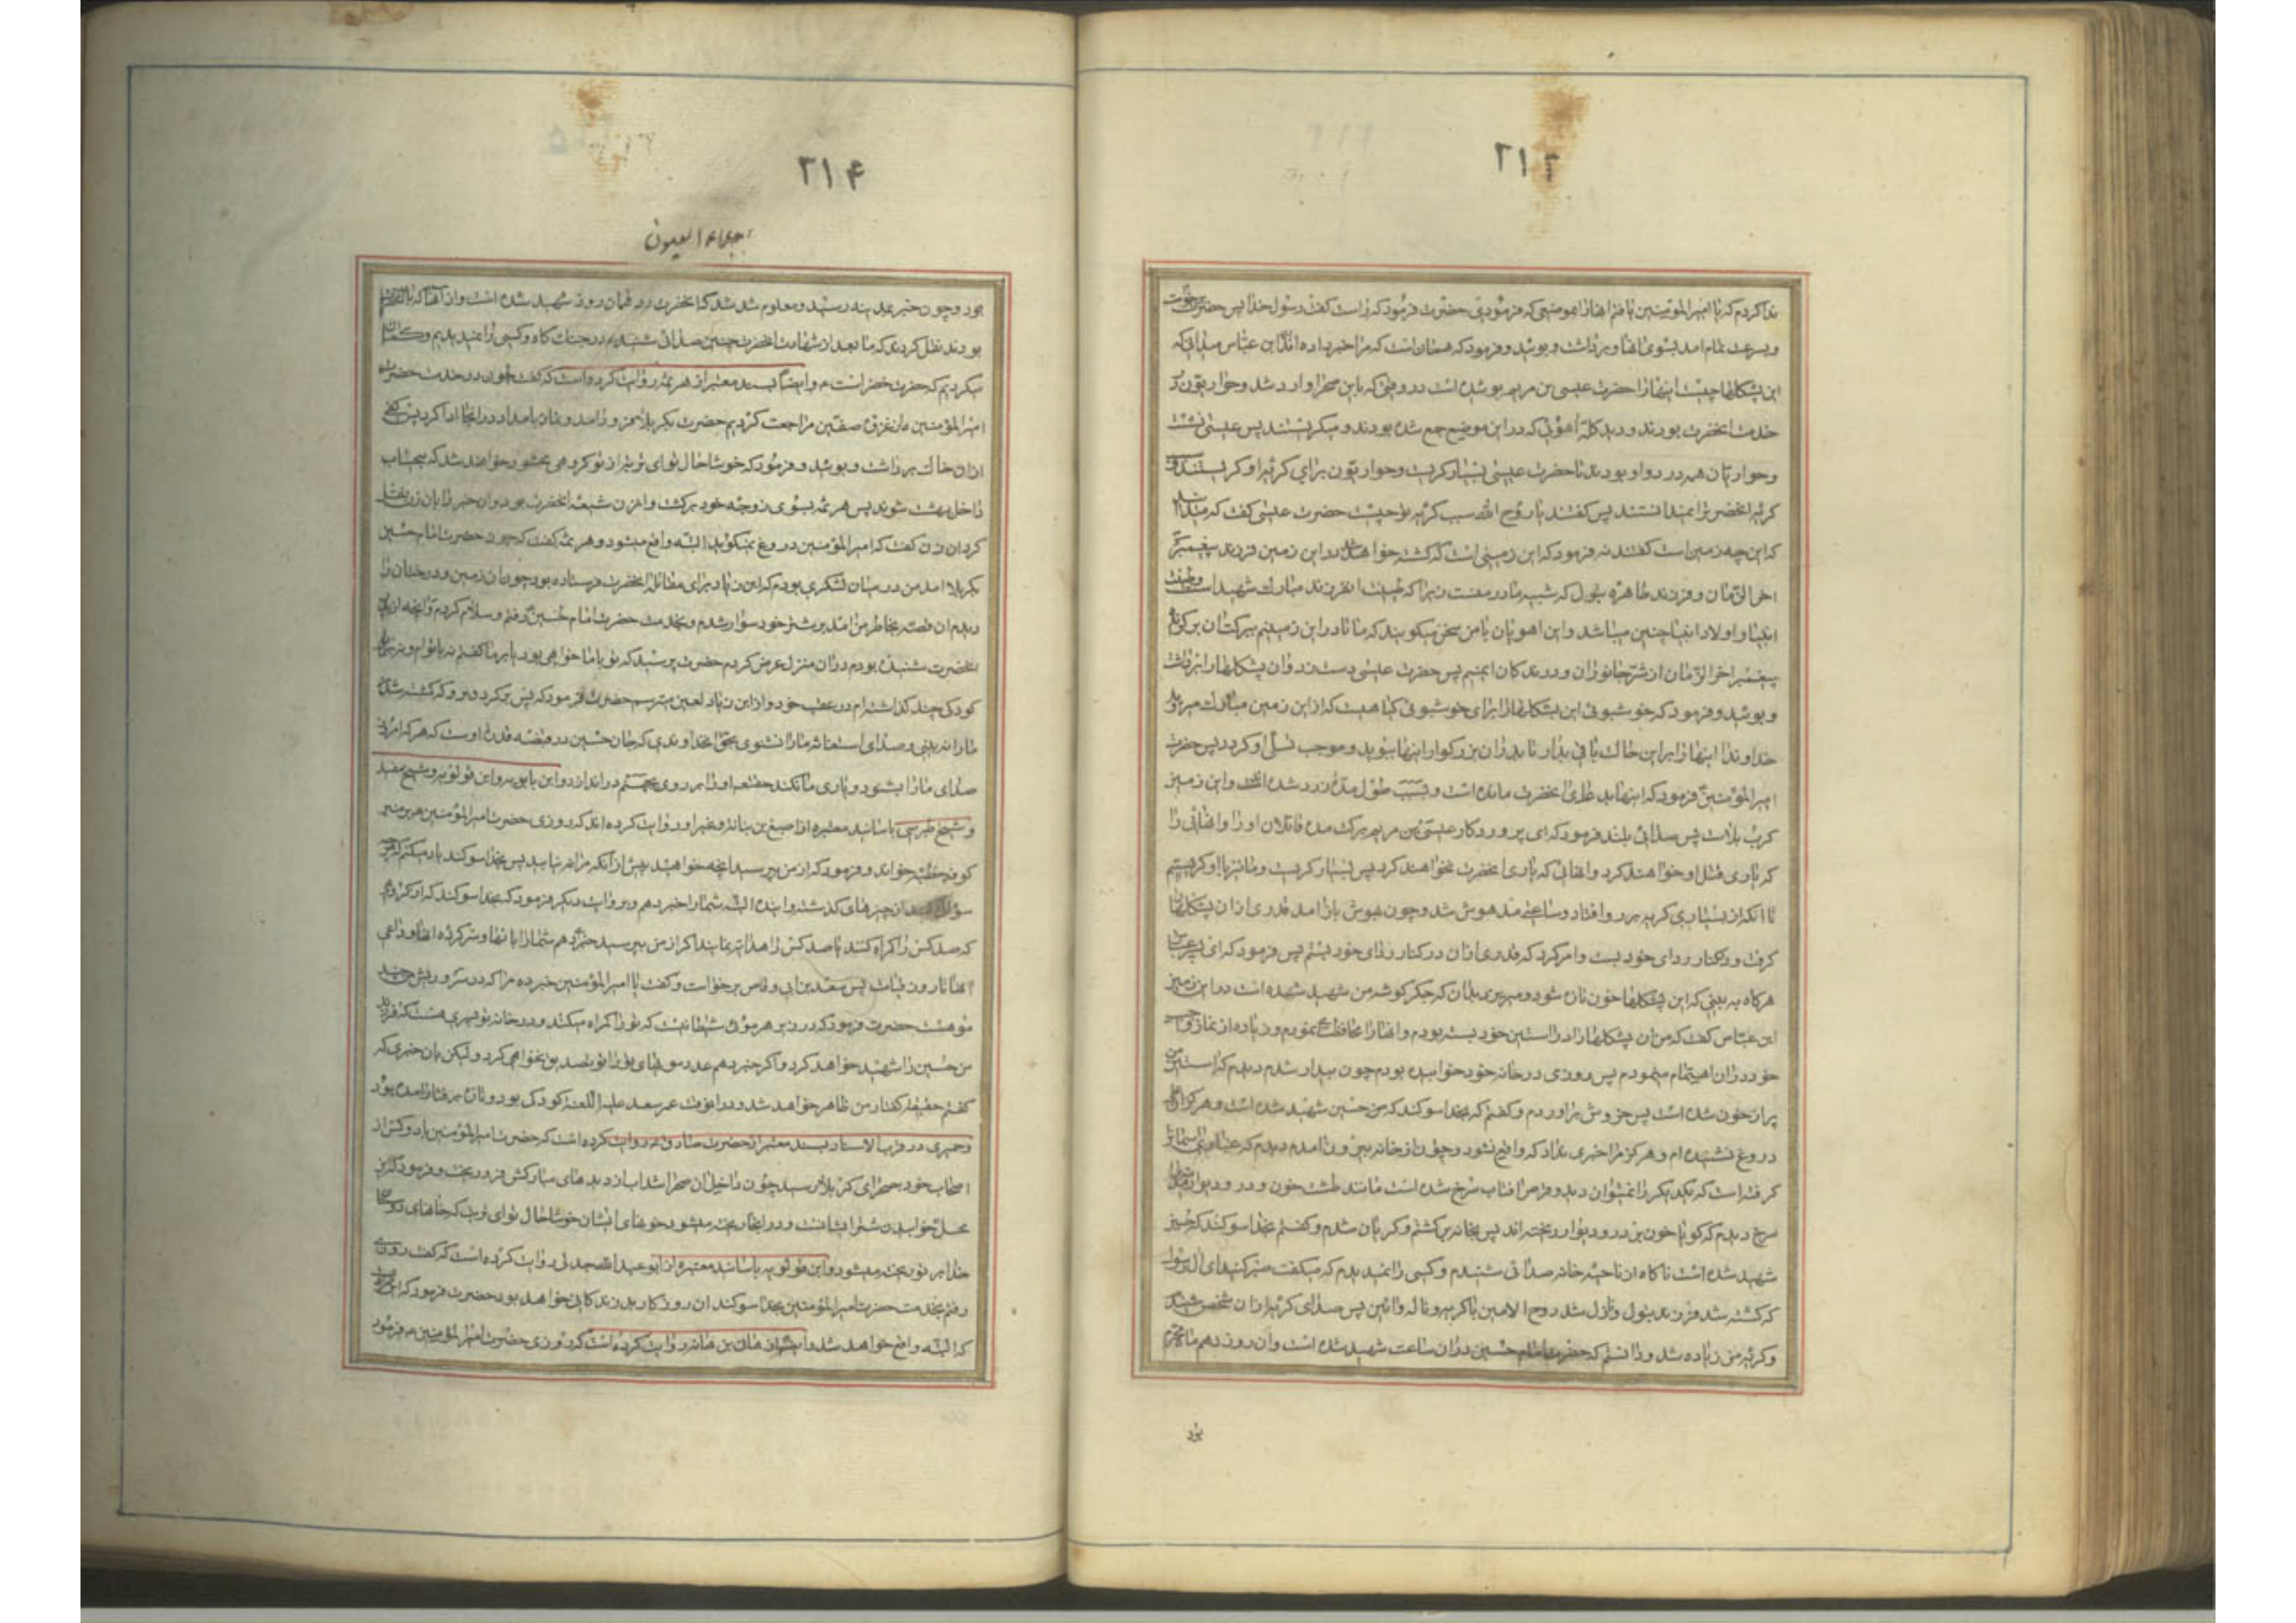 ۲۱۳
ندا کردم که یا امیرالمؤمنین یافتم انها را بهمو صفتی که فرمودی حضرت فرمود که راست گفت رسول خدا پس حضرت برخواست
و بسرعت تمام امد بسوی انها و برداشت و بوئید و فرمود که همان است که مرا خبر داده اند ای ابن عباس میدانی که
این پشکلها چیست اینها را حضرت عیسی بن مریم بوئیده است در وقتی که باین صحرا وارد شد و حواریون در
خدمت انحضرت بودند و دید کله اهوئی که در این موضع جمع شده بودند و میکریستند پس عیسی نشست
و حواریان همه در دور او بودند تا حضرت عیسی بسیار کریست و حواریون برای کریه او کریستند و
کریه انحضرت را نمیدانستند پس گفتند یا روح الله سبب کریه تو چیست حضرت عیسی گفت که میدانید
که این چه زمین است گفتند نه فرمود که این زمینی است که کشته خواهد شد در این زمین فرزند پیغمبر
اخر الزمان و فرزند طاهره بتول که شبیه مادر منست زیرا که طینت ان فرزند مبارک شهید است و طینت
انبیا و اولاد انبیا چنین میباشد و این اهویان با من سخن میکویند که ما تا در این زمینیم ببرکت ان فرزند
پیغمبر اخر الزمان از شر جانوران و درندکان ایمنیم پس حضرت عیسی دست زد و ان پشکلها را برداشت
و بوئید و فرمود که خوشبوئی این پشکلها از برای خوشبوئی کیاهیست که از این زمین مبارک میروید
خداوندا اینها را بر این حال باقی بدار تا پدر ان بزرکوار اینها ببوید و موجب تسلی او کردد پس حضرت
امیرالمؤمنین فرمود که اینها بدعای انحضرت مانده است و بسبب طول مدت زرد شده است و این زمین
کرب بلاست پس صدائی بلند فرمود که ای پروردکار عیسی بن مریم برکت مده قاتلان او را و انهائی را
که یاری قتل او خواهند کرد و انهائی که یاری انحضرت نخواهند کرد پس بسیار کریست و ما نیز با او کریستیم
تا انکه از بسیاری کریه بر رو افتاد و ساعتی مدهوش شد و چون بهوش باز امد قدری از ان پشکلها
کرفت و در کنار ردای خود بست و امر کرد که قدری از ان در کنار ردای خود بستم پس فرمود که ای پسر عباس
هرکاه به بینی که این پشکلها خون تازه شود و میریزد بدان که جکر کوشه من شهید شده است در این زمین
ابن عباس گفت که من ان پشکلها را در استین خود بسته بودم و انها را محافظت مینمودم و زیاده از نماز واجب
خود در ان اهتمام مینمودم پس روزی در خانه خود خوابیده بودم چون بیدار شدم دیدم که استین من
پر از خون شده است پس خروش براوردم و گفتم که بخدا سوکند که من حسین شهید شده است و هرکز
دروغ نشنیده ام و هرکز مرا خبری نداد که واقع نشود و چون از خانه بیرون امدم دیدم که غباری اسمان را
کرفته است که یکدیکر را نمیتوان دید و قرص افتاب سرخ شده است مانند طشت خون و در و دیوار
سرخ دیدم که کویا خون بر در و دیوار ریخته اند پس بخانه برکشتم و کریان شدم و گفتم بخدا سوکند که حسین
شهید شده است ناکاه از ناحیه خانه صدائی شنیدم و کسی را نمیدیدم که میکفت صبر کنید ای ال رسول
که کشته شد فرزند بتول و نازل شد روح الامین با کریه و ناله و انین پس صدای کریه از ان شخص شنیدم
و کریه من زیاده شد و دانستم که حضرت امام حسین در ان ساعت شهید شده است و ان روز دهم ماه محرم
بود
۲۱۴
جلاء العیون
بود و چون خبر بمدینه رسید و معلوم شد که انحضرت در همان روز شهید شده است و از انها که با انحضرت
بودند نقل کردند که ما بعد از شهادت انحضرت چنین صدائی شنیدیم در جنک کاه و کسی را نمیدیدیم و کمان
میکردیم که حضرت خضر است و ایضا بسند معتبر از هرثمه روایت کرده است که گفت چون در خدمت حضرت
امیرالمؤمنین از غزوه صفین مراجعت کردیم حضرت بکربلا فرود امد و نماز بامداد در انجا ادا کرد پس کفی
از ان خاک برداشت و بوئید و فرمود که خوشا حال تو ای تربت از تو کروهی محشور خواهند شد که بیحساب
داخل بهشت شوند پس هرثمه بسوی زوجه خود برکشت و ان زن شیعه انحضرت بود و ان خبر را بان زن نقل
کرد ان زن گفت که امیرالمؤمنین دروغ نمیکوید البته واقع میشود و هرثمه گفت که چون حضرت امام حسین
بکربلا امد من در میان لشکری بودم که ابن زیاد برای مقاتله انحضرت فرستاده بود چون ان زمین و درختان را
دیدم ان قصه بخاطر من امد بر شتر خود سوار شدم و بخدمت حضرت امام حسین رفتم و سلام کردم و انچه از پدر
انحضرت شنیده بودم در ان منزل عرض کردم حضرت پرسید که تو با ما خواهی بود یا بر ما گفتم نه با توام و نه بر تو
کودکی چند کذاشته ام در عقب خود و از ابن زیاد لعین میترسم حضرت فرمود که پس برکرد و برو که کشته شدن
ما را نه بینی و صدای استغاثه ما را نشنوی بحق خداوندی که جان حسین در قبضه قدرت اوست که هر که امروز
صدای ما را بشنود و یاری ما نکند حقتعالی او را بر روی بجهنم در اندازد و ابن بابویه و ابن قولویه و شیخ مفید
و شیخ طبرسی باسانید معتبره از اصبغ بن نباته و غیر او روایت کرده اند که روزی حضرت امیرالمؤمنین بر منبر
کوفه خطبه خواند و فرمود که از من بپرسید انچه خواهید پیش از انکه مرا نیابید پس بخدا سوکند یاد میکنم که هرچه
سؤال کنید از چیزهای کذشته و اینده البته شما را خبر دهم و بروایت دیکر فرمود که بخدا سوکند که از کروهی
که صد کس را کمراه کنند یا صد کس را هدایت نمایند اکر از من بپرسید خبر دهم شما را بانها و سرکرده انها و داعی
انها تا روز قیامت پس سعد بن ابی وقاص برخواست و گفت یا امیرالمؤمنین خبر ده مرا که در سر و ریش من چند
مو هست حضرت فرمود که در زیر هر موئی شیطانیست که تو را کمراه میکند و در خانه تو پسری هست که فرزند
من حسین را شهید خواهد کرد و اکر خبر دهم عدد موهای تو را تو تصدیق نخواهی کرد و لیکن بان خبری که
گفتم حقیقت گفتار من ظاهر خواهد شد و در انوقت عمر سعد علیه اللعنه کودک بود و تازه برفتار امده بود
و حمیری در قرب الاسناد بسند معتبر از حضرت صادق روایت کرده است که حضرت امیرالمؤمنین با دو کس از
اصحاب خود بصحرای کربلا رسید چون داخل ان صحرا شد اب از دیدهای مبارکش فرو ریخت و فرمود که این
محل خوابیدن شتران ایشانست و در اینجا ریخته میشود خونهای ایشان خوشا حال تو ای تربت که خونهای دوستان
خدا بر تو ریخته میشود و ابن قولویه باسانید معتبره از ابو عبدالله جدلی روایت کرده است که گفت روزی
رفتم بخدمت حضرت امیرالمؤمنین
که البته واقع خواهد شد و ایضا از هانی بن هانی روایت کرده است که روزی حضرت امیرالمؤمنین فرمود